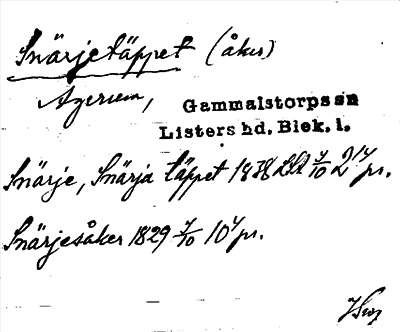 Snärjetäppet (åker)
Agerum,
Gammalstorps sn
Listers hd, Blek. l.
Snärje, Snärja täppet 1838 LSA 7/10 217 pr.
Snärjesåker 1829 7/10 107 pr.